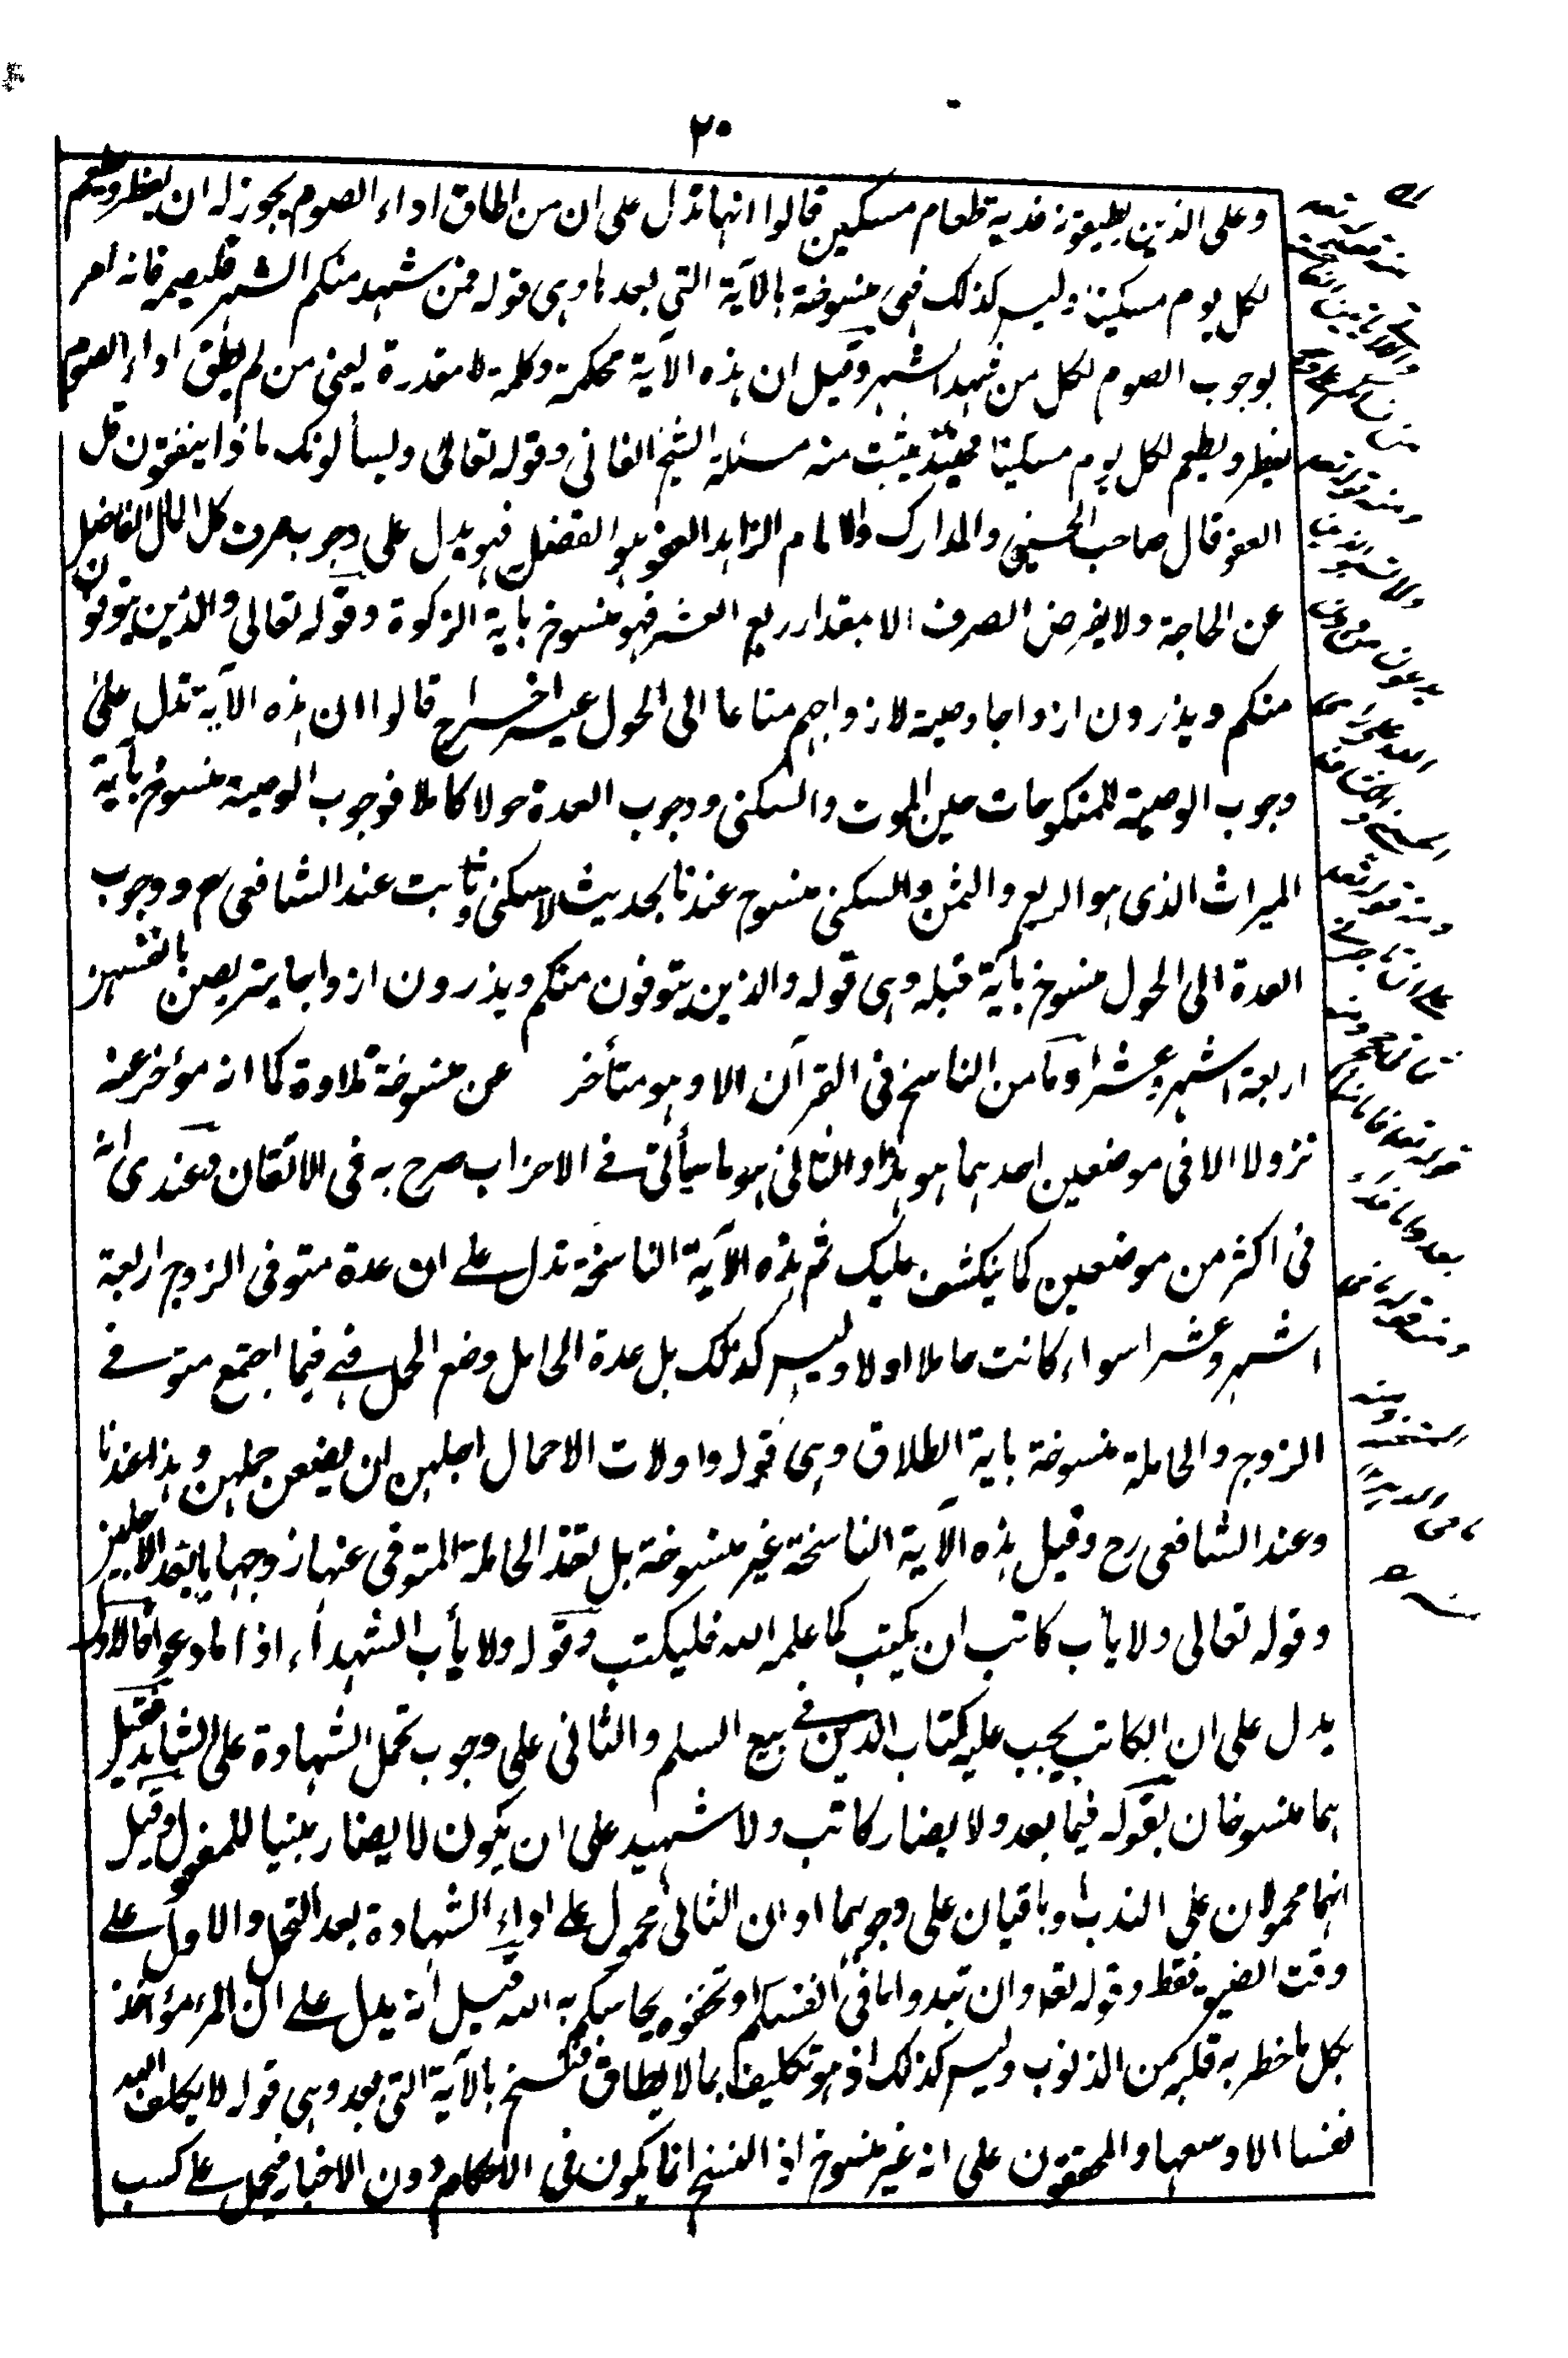 ٢٠
وعلى الذين يطيقونه فدية طعام مسكين قالوا انها تدل على ان من اطاق اداء الصوم يجوز له ان يفطر ويطعم
لكل يوم مسكينا وليس كذلك فهى منسوخة بالآية التى بعدها وهى قوله فمن شهد منكم الشهر فليصمه فانه امر
بوجوب الصوم لكل من شهد الشهر وقيل ان هذه الآية محكمة وكلمة لا مقدرة يعنى من لم يطق اداء الصوم
يفطر ويطعم لكل يوم مسكينا فحينئذ يثبت منه مسئلة الشيخ الفانى وقوله تعالى ويسألونك ماذا ينفقون قل
العفو قال صاحب الحسينى والمدارك والامام الزاهد العفو هو الفضل فهو يدل على وجوب صرف كل المال الفاضل
عن الحاجة ولا يفرض الصرف الا بمقدار ربع العشر فهو منسوخ باية الزكوة وقوله تعالى والذين يتوفون
منكم ويذرون ازواجا وصية لازواجهم متاعا الى الحول غير اخراج قالوا ان هذه الآية تدل على
وجوب الوصية للمنكوحات حين الموت والسكنى ووجوب العدة حولا كاملا فوجوب الوصية منسوخ بآية
الميراث الذى هو الربع والثمن والسكنى منسوخ عندنا بحديث لا سكنى وثابت عند الشافعى رح ووجوب
العدة الى الحول منسوخ بآية قبله وهى قوله والذين يتوفون منكم ويذرون ازواجا يتربصن بانفسهن
اربعة اشهر وعشرا وما من الناسخ فى القرآن الا وهو متأخر عن منسوخة تلاوة كما انه مؤخر عنه
نزولا الا فى موضعين احدهما هو هذا والثانى هو ما سيأتى فى الاحزاب صرح به فى الاتقان وعندى انه
فى اكثر من موضعين كما ينكشف عليك ثم هذه الآية الناسخة تدل على ان عدة متوفى الزوج اربعة
اشهر وعشرا سواء كانت حاملا اولا وليس كذلك بل عدة الحامل وضع الحمل فهى فيما اجتمع متوفى
الزوج والحاملة منسوخة باية الطلاق وهى قوله واولات الاحمال اجلهن ان يضعن حملهن وهذا عندنا
وعند الشافعى رح وقيل هذه الآية الناسخة غير منسوخة بل تعتد الحاملة المتوفى عنها زوجها بابعد الاجلين
وقوله تعالى ولا يأب كاتب ان يكتب كما علمه الله فليكتب وقوله ولا يأب الشهداء اذا ما دعوا فالاول
يدل على ان الكاتب يجب عليه كتاب الدين فى بيع السلم والثانى على وجوب تحمل الشهادة على الشاهد فقيل
هما منسوخان بقوله فيما بعد ولا يضار كاتب ولا شهيد على ان يكون لا يضار مبنيا للمفعول وقيل
انهما محمولان على الندب وباقيان على وجوبهما او ان الثانى محمول على اداء الشهادة بعد التحمل والاول على
وقت الضيق فقط وقوله تعـ وان تبدوا ما فى انفسكم او تخفوه يحاسبكم به الله قيل انه يدل على ان المرء مؤاخذ
بكل ما خطر به قلبه من الذنوب وليس كذلك اذ هو تكليف بما لا يطاق فنسخ بالآية التى بعد وهى قوله لا يكلف الله
نفسا الا وسعها والمحققون على انه غير منسوخ اذ النسخ انما يكون فى الاحكام دون الاخبار فيحمل على كسب